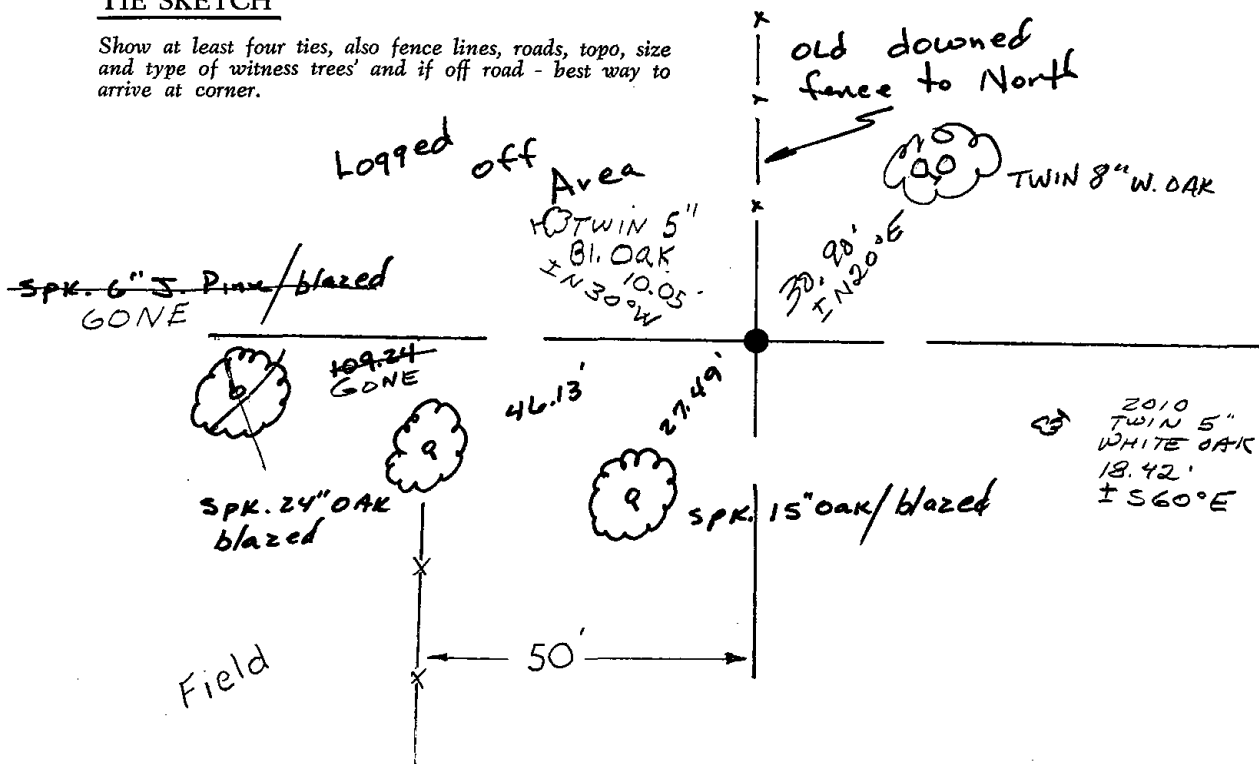 TIE SKETCH
Show at least four ties, also fence lines, roads, topo, size
and type of witness trees' and if off road - best way to
arrive at corner.
old downed
fence to North
Logged off Area
TWIN 8" W. OAK
TWIN 5"
Bl. OAK
10.05'
± N30°W
30.90'
± N20°E
Spk. 6" J. Pine/blazed
GONE
109.24
GONE
46.13'
27.49'
2010
TWIN 5"
WHITE OAK
18.42'
± S60°E
Spk. 24" OAK
blazed
Spk. 15" Oak/blazed
50'
Field